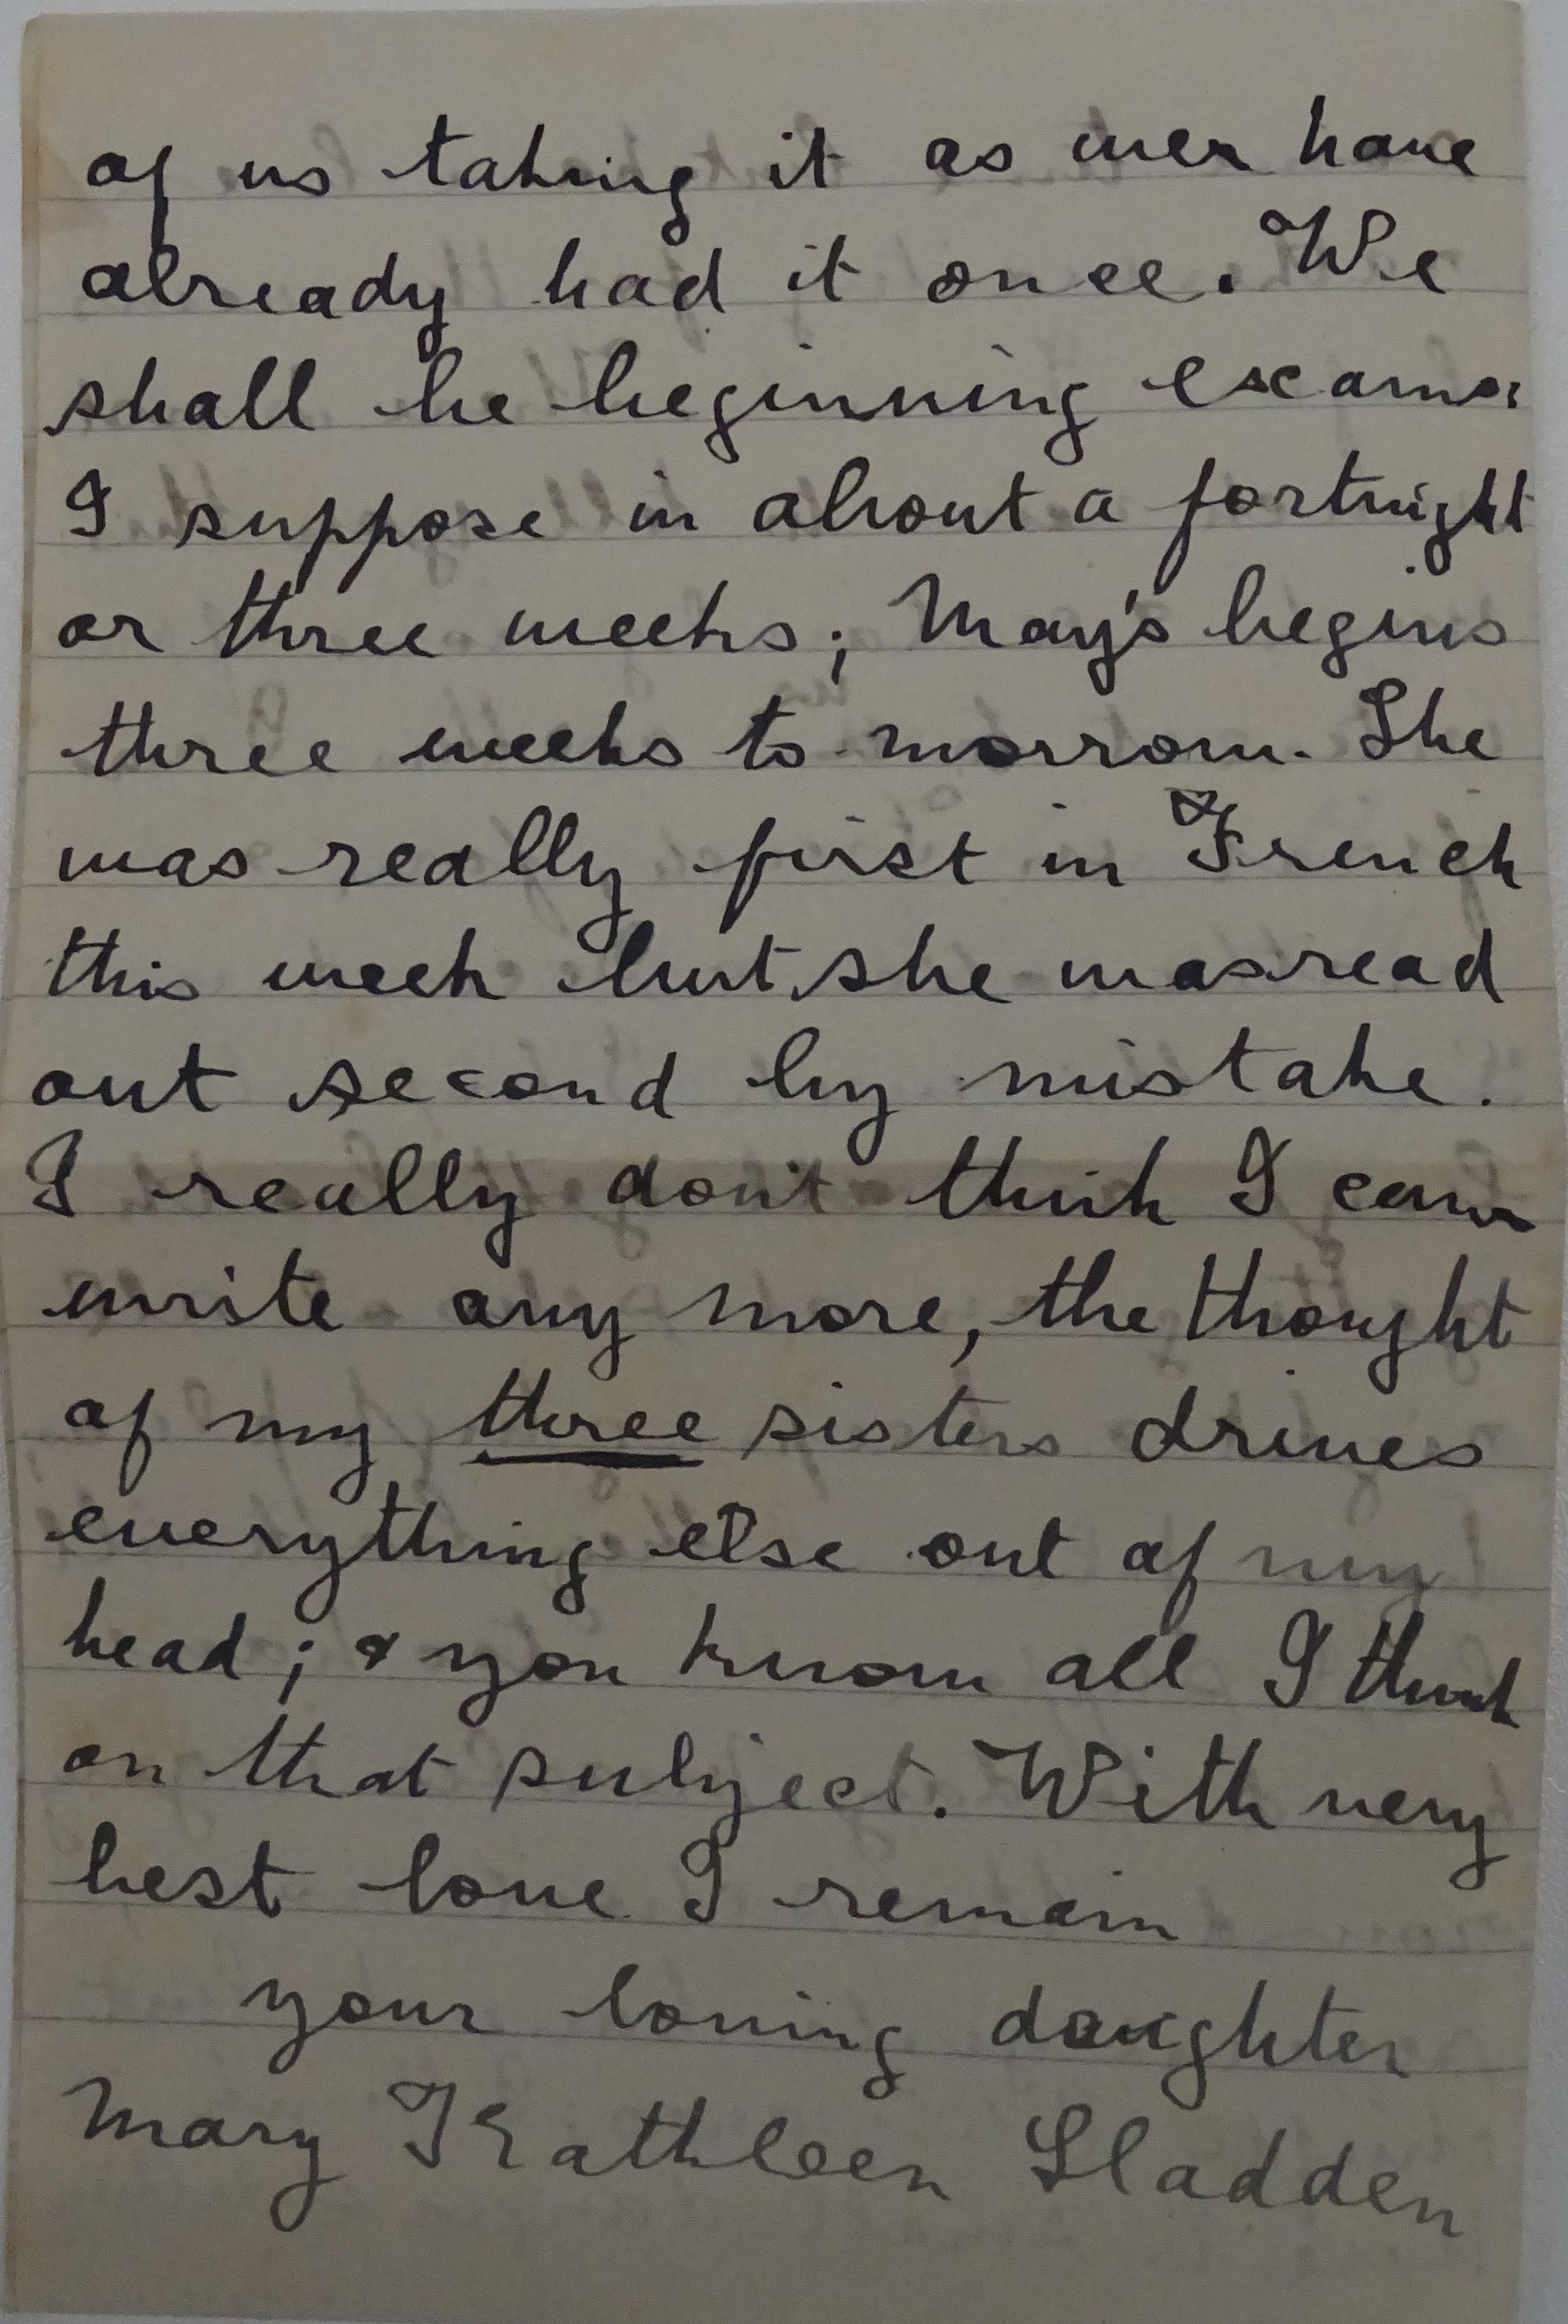 of us taking it as wer have
already had it once. We
shall be beginning exams
I suppose in about a fortnight
or three weeks; May's begins
three weeks to morrow. She
was really first in French
this week but she was read
out second by mistake.
I really don't think I can
write any more, the thought
of my three sisters drives
everything else out of my
head; & you know all I think
on that subject. With very
best love I remain
your loving daughter
Mary Kathleen Sladden